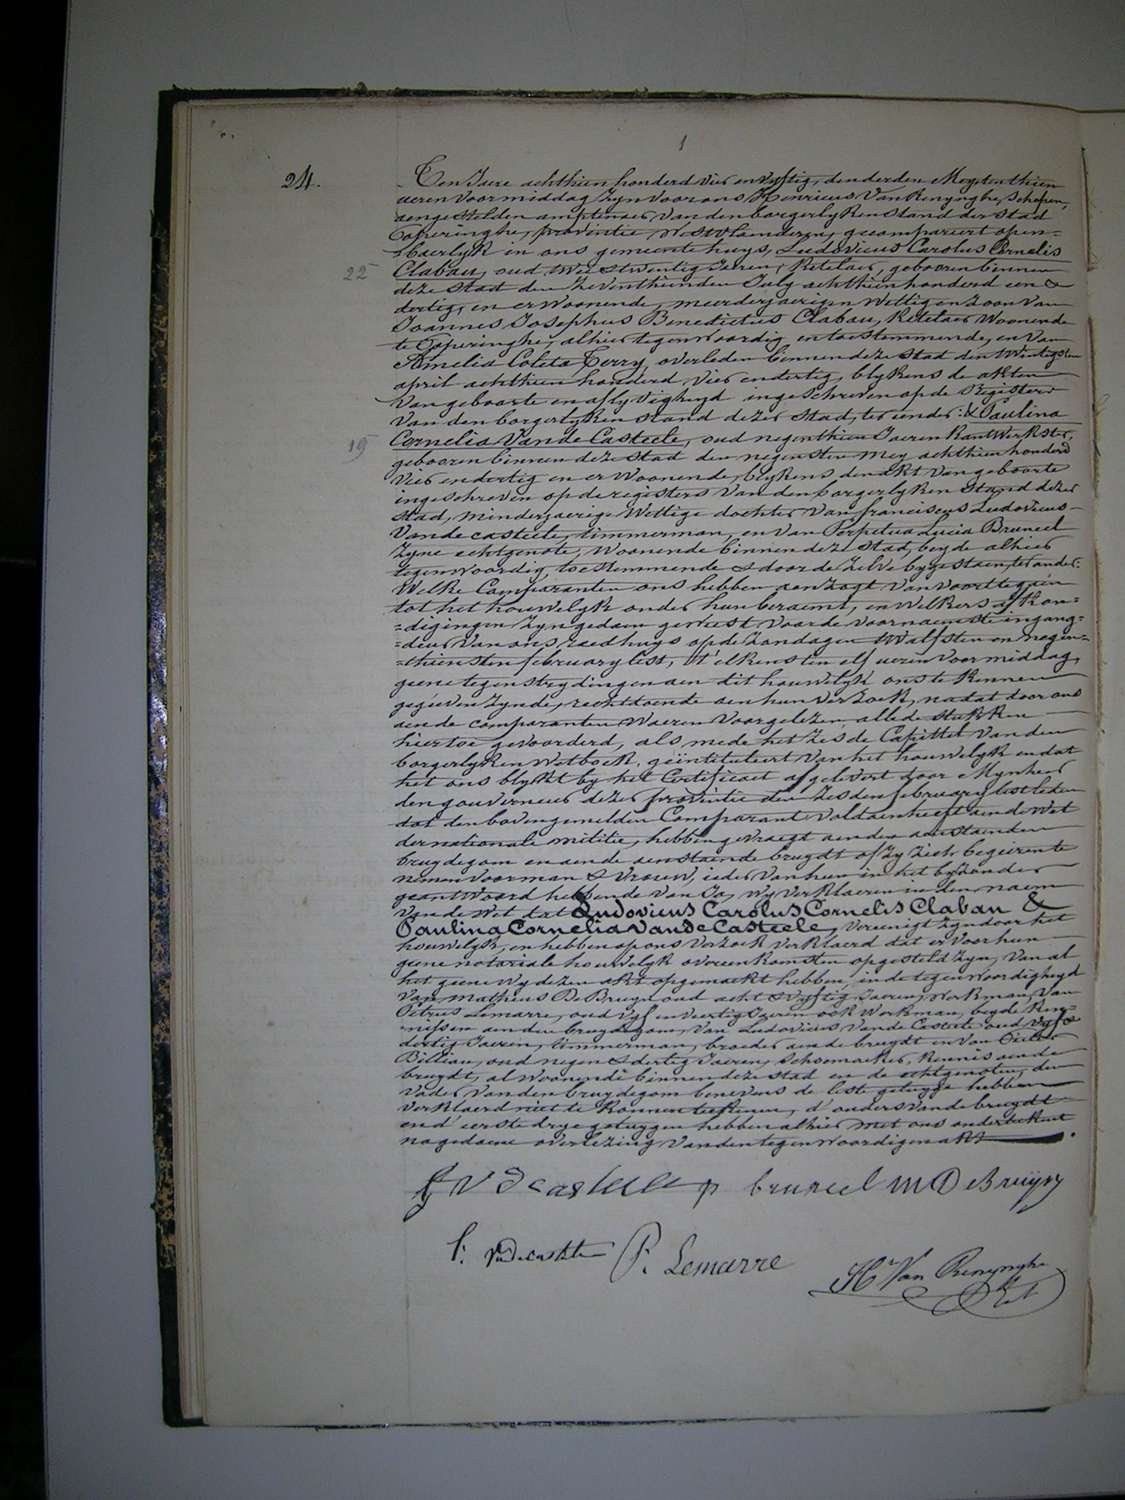 1
24. Ten Jaere achthien honderd vier en vyftig, den derden Mey ten thien
ueren voormiddag zyn voor ons Henricus Van Renynghe, Schepen,
aengestelden amptenaer van den borgerlyken stand der stad
Poperinghe, provintie Westvlaenderen, gecompareert open-
-baerlyk in ons gemeentehuys, Ludovicus Carolus Cornelis
22 Clabau, oud twee & twentig Jaeren, Ketelaer, gebooren binnen
deze stad den zeventhienden July achthien honderd een &
dertig, en er woonende, meerderjaerigen wettigen zoon van
Joannes Josephus Benedictus Clabau, Ketelaer woonende
te Poperinghe, alhier tegenwoordig en toestemmende, en van
Amelia Coleta Terry, overleden binnen deze stad den twintigsten
april achthien honderd vier en dertig, blykens de akten
van geboorte en aflyvigheyd ingeschreven op de Registers
van den borgerlyken stand dezer stad, ter eender: & Paulina
19 Cornelia Van de Casteele, oud negenthien Jaeren Kantwerkster,
gebooren binnen deze stad den negensten Mey achthien honderd
vier en dertig en er woonende, blykens den akt van geboorte
ingeschreven op de registers van den borgerlyken stand dezer
stad, minderjaerige wettige dochter van franciscus Ludovicus
Van de casteele, timmerman, en van Perpetua Lucia Bruneel
zyne echtgenote, woonende binnen deze stad, beyde alhier
tegenwoordig, toestemmende & door de zelve bygestaen, ter ander.
Welke Comparanten ons hebben aenzogt van voorttegaen
tot het houwelyk onder hun beraemt, en welkers afkon-
-digingen zyn gedaen geweest voor de voornaemste ingang-
-deur van ons raedhuys op de zondagen twalfsten en negen-
-thiensten february lest, t' elkens ten elf ueren voormiddag,
geene tegenstrydingen aen dit houwelyk ons te kennen
gegeven zynde, rechtdoende aen hun verzoek, nadat door ons
aen de comparanten waeren voorgelezen alle de stukken
hiertoe gevoorderd, als mede het zesde Capittel van den
borgerlyken wetboek, geïntituleert van het houwelyk en dat
het ons blykt by het Certificaet afgelevert door Mynheer
den gouverneur dezer provintie den zesden february lestleden
dat den bovengemelden Comparant voldaen heeft aen de wet
der nationale militie, hebben gevraegt aen den aenstaenden
bruydegom en aen de aenstaende bruydt of zy zich begeirente
nemen voor man & vrouw, ieder van hun in het byzonder
geantwoord hebbende van Ja, wy verklaeren in den naem
van de wet dat Ludovicus Carolus Cornelis Clabau &
Paulina Cornelia Van de Casteele, vereenigt zyn door het
houwelyk, en hebben op ons verzoek verklaerd dat er voor hun
geene notariale houwelyk overeenkomsten opgesteld zyn, van al
het geene wy dezen akt opgemaekt hebben, in de tegenwoordigheyd
van Matheus De Bruyn oud acht & vyftig Jaeren, Werkman, van
Petrus Lemarre, oud vyf en veertig Jaeren ook Werkman, beyde Ken-
-nissen aen den bruydegom, van Ludovicus Van de Casteele oud vyf &
dertig Jaeren, timmerman, broeder aen de bruydt en van Pieter
Billiau, oud negen & dertig Jaeren, Schoemaeker, Kennis aen de
bruydt, al woonende binnen deze stad en de echtgenoten, den
vader van den bruydegom benevens de leste getuyge hebben
verklaerd niet te konnen teekenen, d' ouders van de bruydt
en d' eerste drye getuygen hebben alhier met ons onderteekent
na gedaene overlezing van den tegenwoordigen akt.
f V D Casteele p bruneel M D e Bruijn
l: Vandecasteele P. Lemarre
H. Van Renynghe